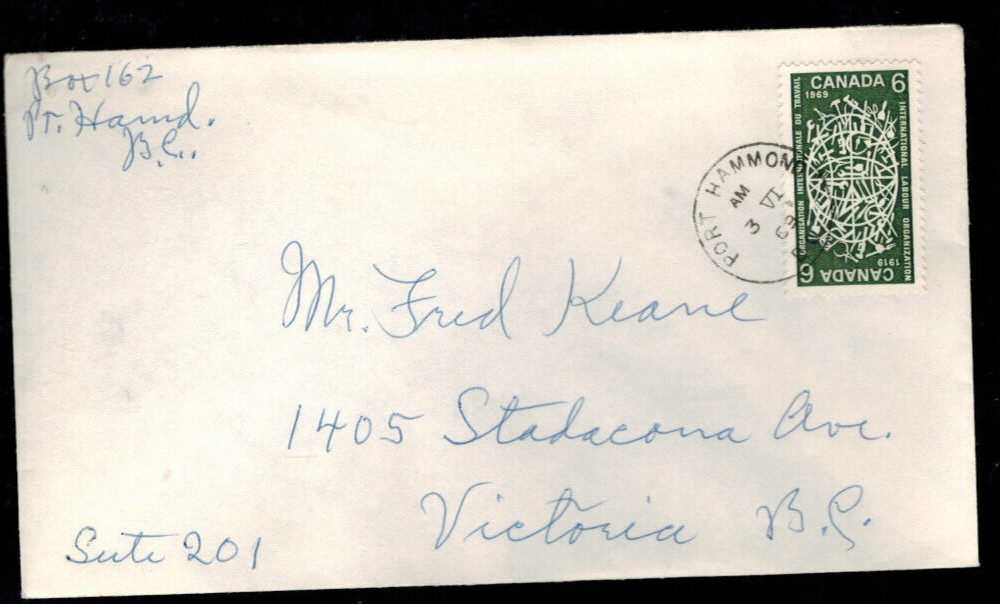 Box 162
Pt. Hamd.
B.C.
CANADA 6
1969
ORGANISATION INTERNATIONALE DU TRAVAIL
INTERNATIONAL LABOUR ORGANIZATION
1919
CANADA 6
PORT HAMMOND
AM
3 VI
69
Mr. Fred Keane
1405 Stadacona Ave.
Victoria B.C.
Suite 201